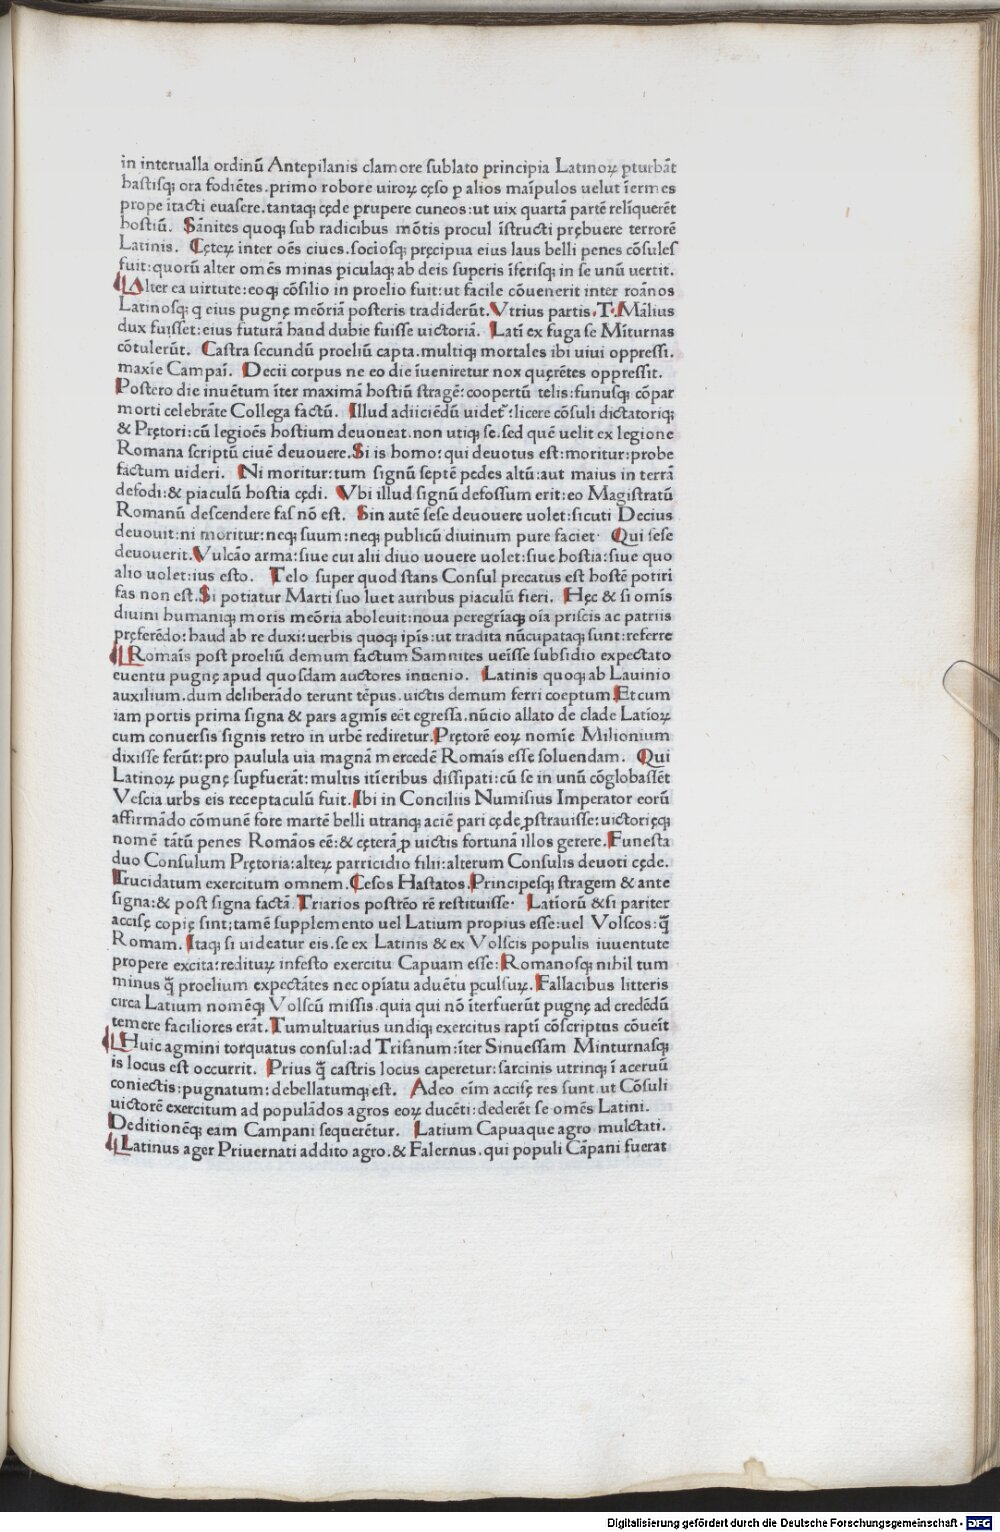 in interualla ordinū Antepilanis clamore sublato principia Latinoꝝ ꝑturbāt
hastisqꝫ ora fodiētes.primo robore uiroꝝ cęso ꝑ alios maīpulos uelut īermes
prope ītacti euasere.tantaqꝫ cęde ꝑrupere cuneos:ut uix quartā partē relīquerēt
hostiū. Sānites quoqꝫ sub radicibus mōtis procul īstructi prębuere terrorē
Latinis. Cęteꝝ inter oēs ciues.sociosqꝫ pręcipua eius laus belli penes cōsules
fuit:quorū alter omēs minas piculaqꝫ ab deis superis īferisqꝫ in se unū uertit.
Alter ea uirtute:eoqꝫ cōsilio in proelio fuit:ut facile cōuenerit inter roānos
Latinosqꝫ q eius pugnę meōriā posteris tradiderūt.Vtrius partis.T.Mālius
dux fuisset:eius futurā haud dubie fuisse uictoriā. Latī ex fuga se Mīturnas
cōtulerūt. Castra secundū proeliū capta.multiqꝫ mortales ibi uiui oppressi.
maxīe Campaī. Decii corpus ne eo die īueniretur nox quęrētes oppressit.
Postero die inuētum īter maximā hostiū stragē:coopertū telis:funusqꝫ cōpar
morti celebrāte Collega factū. Illud adiiciēdū uidet:licere cōsuli dictatoriqꝫ
& Prętori:cū legioēs hostium deuoueat.non utiqꝫ se.sed quē uelit ex legione
Romana scriptū ciuē deuouere.Si is homo:qui deuotus est:moritur:probe
factum uideri. Ni moritur:tum signū septē pedes altū:aut maius in terrā
defodi:& piaculū hostia cędi. Vbi illud signū defossum erit:eo Magistratū
Romanū descendere fas nō est. Sin autē sese deuouere uolet:sicuti Decius
deuouit:ni moritur:neqꝫ suum:neqꝫ publicū diuinum pure faciet· Qui sese
deuouerit.Vulcāo arma:siue cui alii diuo uouere uolet:siue hostia:siue quo
alio uolet:ius esto. Telo super quod stans Consul precatus est hostē potiri
fas non est.Si potiatur Marti suo luet auribus piaculū fieri. Hęc & si omis
diuini humaniqꝫ moris meōria aboleuit:noua peregrīaqꝫ oīa priscis ac patriis
pręferēdo:haud ab re duxi:uerbis quoqꝫ ipīs:ut tradita nūcupataqꝫ sunt:referre
Romaīs post proeliū demum factum Samnites ueīsse subsidio expectato
euentu pugnę apud quosdam auctores inuenio. Latinis quoqꝫ ab Lauinio
auxilium.dum deliberādo terunt tēpus.uictis demum ferri coeptum.Et cum
iam portis prima signa & pars agmīs eēt egressa.nūcio allato de clade Latīoꝝ
cum conuersis signis retro in urbē rediretur.Prętorē eoꝝ nomīe Milionium
dixisse ferūt:pro paulula uia magnā mercedē Romaīs esse soluendam. Qui
Latinoꝝ pugnę suꝑfuerāt:multis itīeribus dissipati:cū se in unū cōglobassēt
Vescia urbs eis receptaculū fuit.Ibi in Conciliis Numisius Imperator eorū
affirmādo cōmunē fore martē belli utranqꝫ aciē pari cęde ꝓstrauisse:uictorięqꝫ
nomē tātū penes Romāos eē:& cęterā ꝑ uictis fortunā illos gerere.Funesta
duo Consulum Prętoria:alteꝝ parricidio filii:alterum Consulis deuoti cęde.
Trucidatum exercitum omnem.Cesos Hastatos.Principesqꝫ stragem & ante
signa:& post signa factā.Triarios postrēo rē restituisse· Latīorū & si pariter
accisę copię sint;tamē supplemento uel Latium propius esse:uel Volscos:q̄
Romam. Itaqꝫ si uideatur eis.se ex Latinis & ex Volscis populis iuuentute
propere excita:redituꝝ infesto exercitu Capuam esse:Romanosqꝫ nihil tum
minus q̄ proelium expectātes nec opīatu aduētu ꝑculsuꝝ.Fallacibus litteris
circa Latium nomēqꝫ Volscū missis.quia qui nō īterfuerūt pugnę ad credēdū
temere faciliores erāt.Tumultuarius undiqꝫ exercitus raptī cōscriptus cōueīt
Huic agmini torquatus consul:ad Trifanum:īter Sinuessam Minturnasqꝫ
is locus est occurrit. Prius q̄ castris locus caperetur:sarcinis utrinqꝫ ī aceruū
coniectis:pugnatum:debellatumqꝫ est. Adeo eīm accisę res sunt.ut Cōsuli
uictorē exercitum ad populādos agros eoꝝ ducēti:dederēt se omēs Latini.
Deditionēqꝫ eam Campani sequerētur. Latium Capuaque agro mulctati.
Latinus ager Priuernati addito agro.& Falernus.qui populi Cāpani fuerat
Digitalisierung gefördert durch die Deutsche Forschungsgemeinschaft - DFG